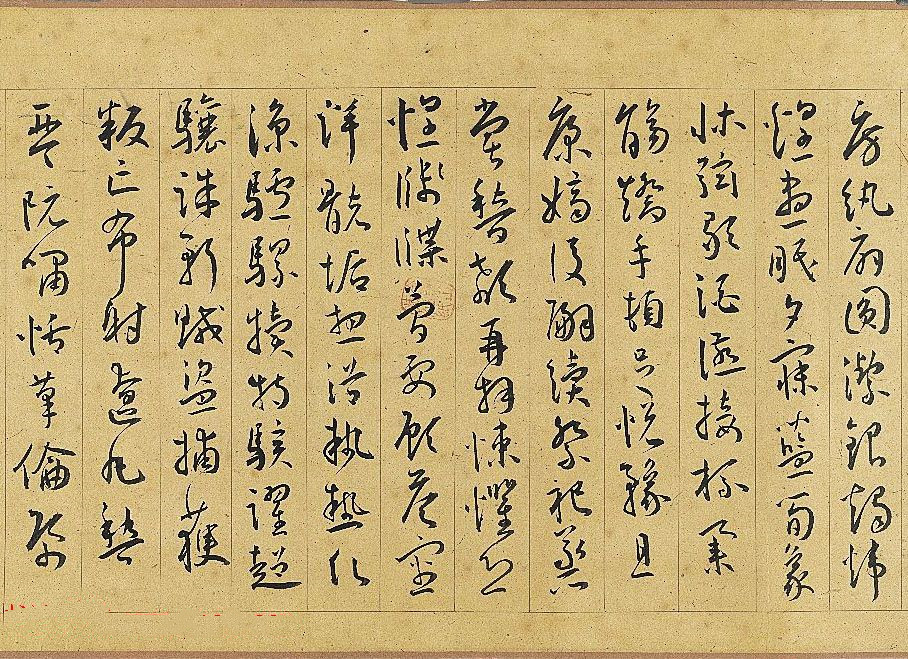 房紈扇圓潔銀燭煒
煌晝眠夕寐藍筍象
床弦歌酒讌接杯舉
觴矯手頓足悅豫且
康嫡後嗣續祭祀蒸
嘗稽顙再拜悚懼恐
惶牋牒簡要顧答審
詳骸垢想浴執熱願
涼驢騾犢特駭躍超
驤誅斬賊盜捕獲
叛亡布射遼丸嵇
琴阮嘯恬筆倫紙